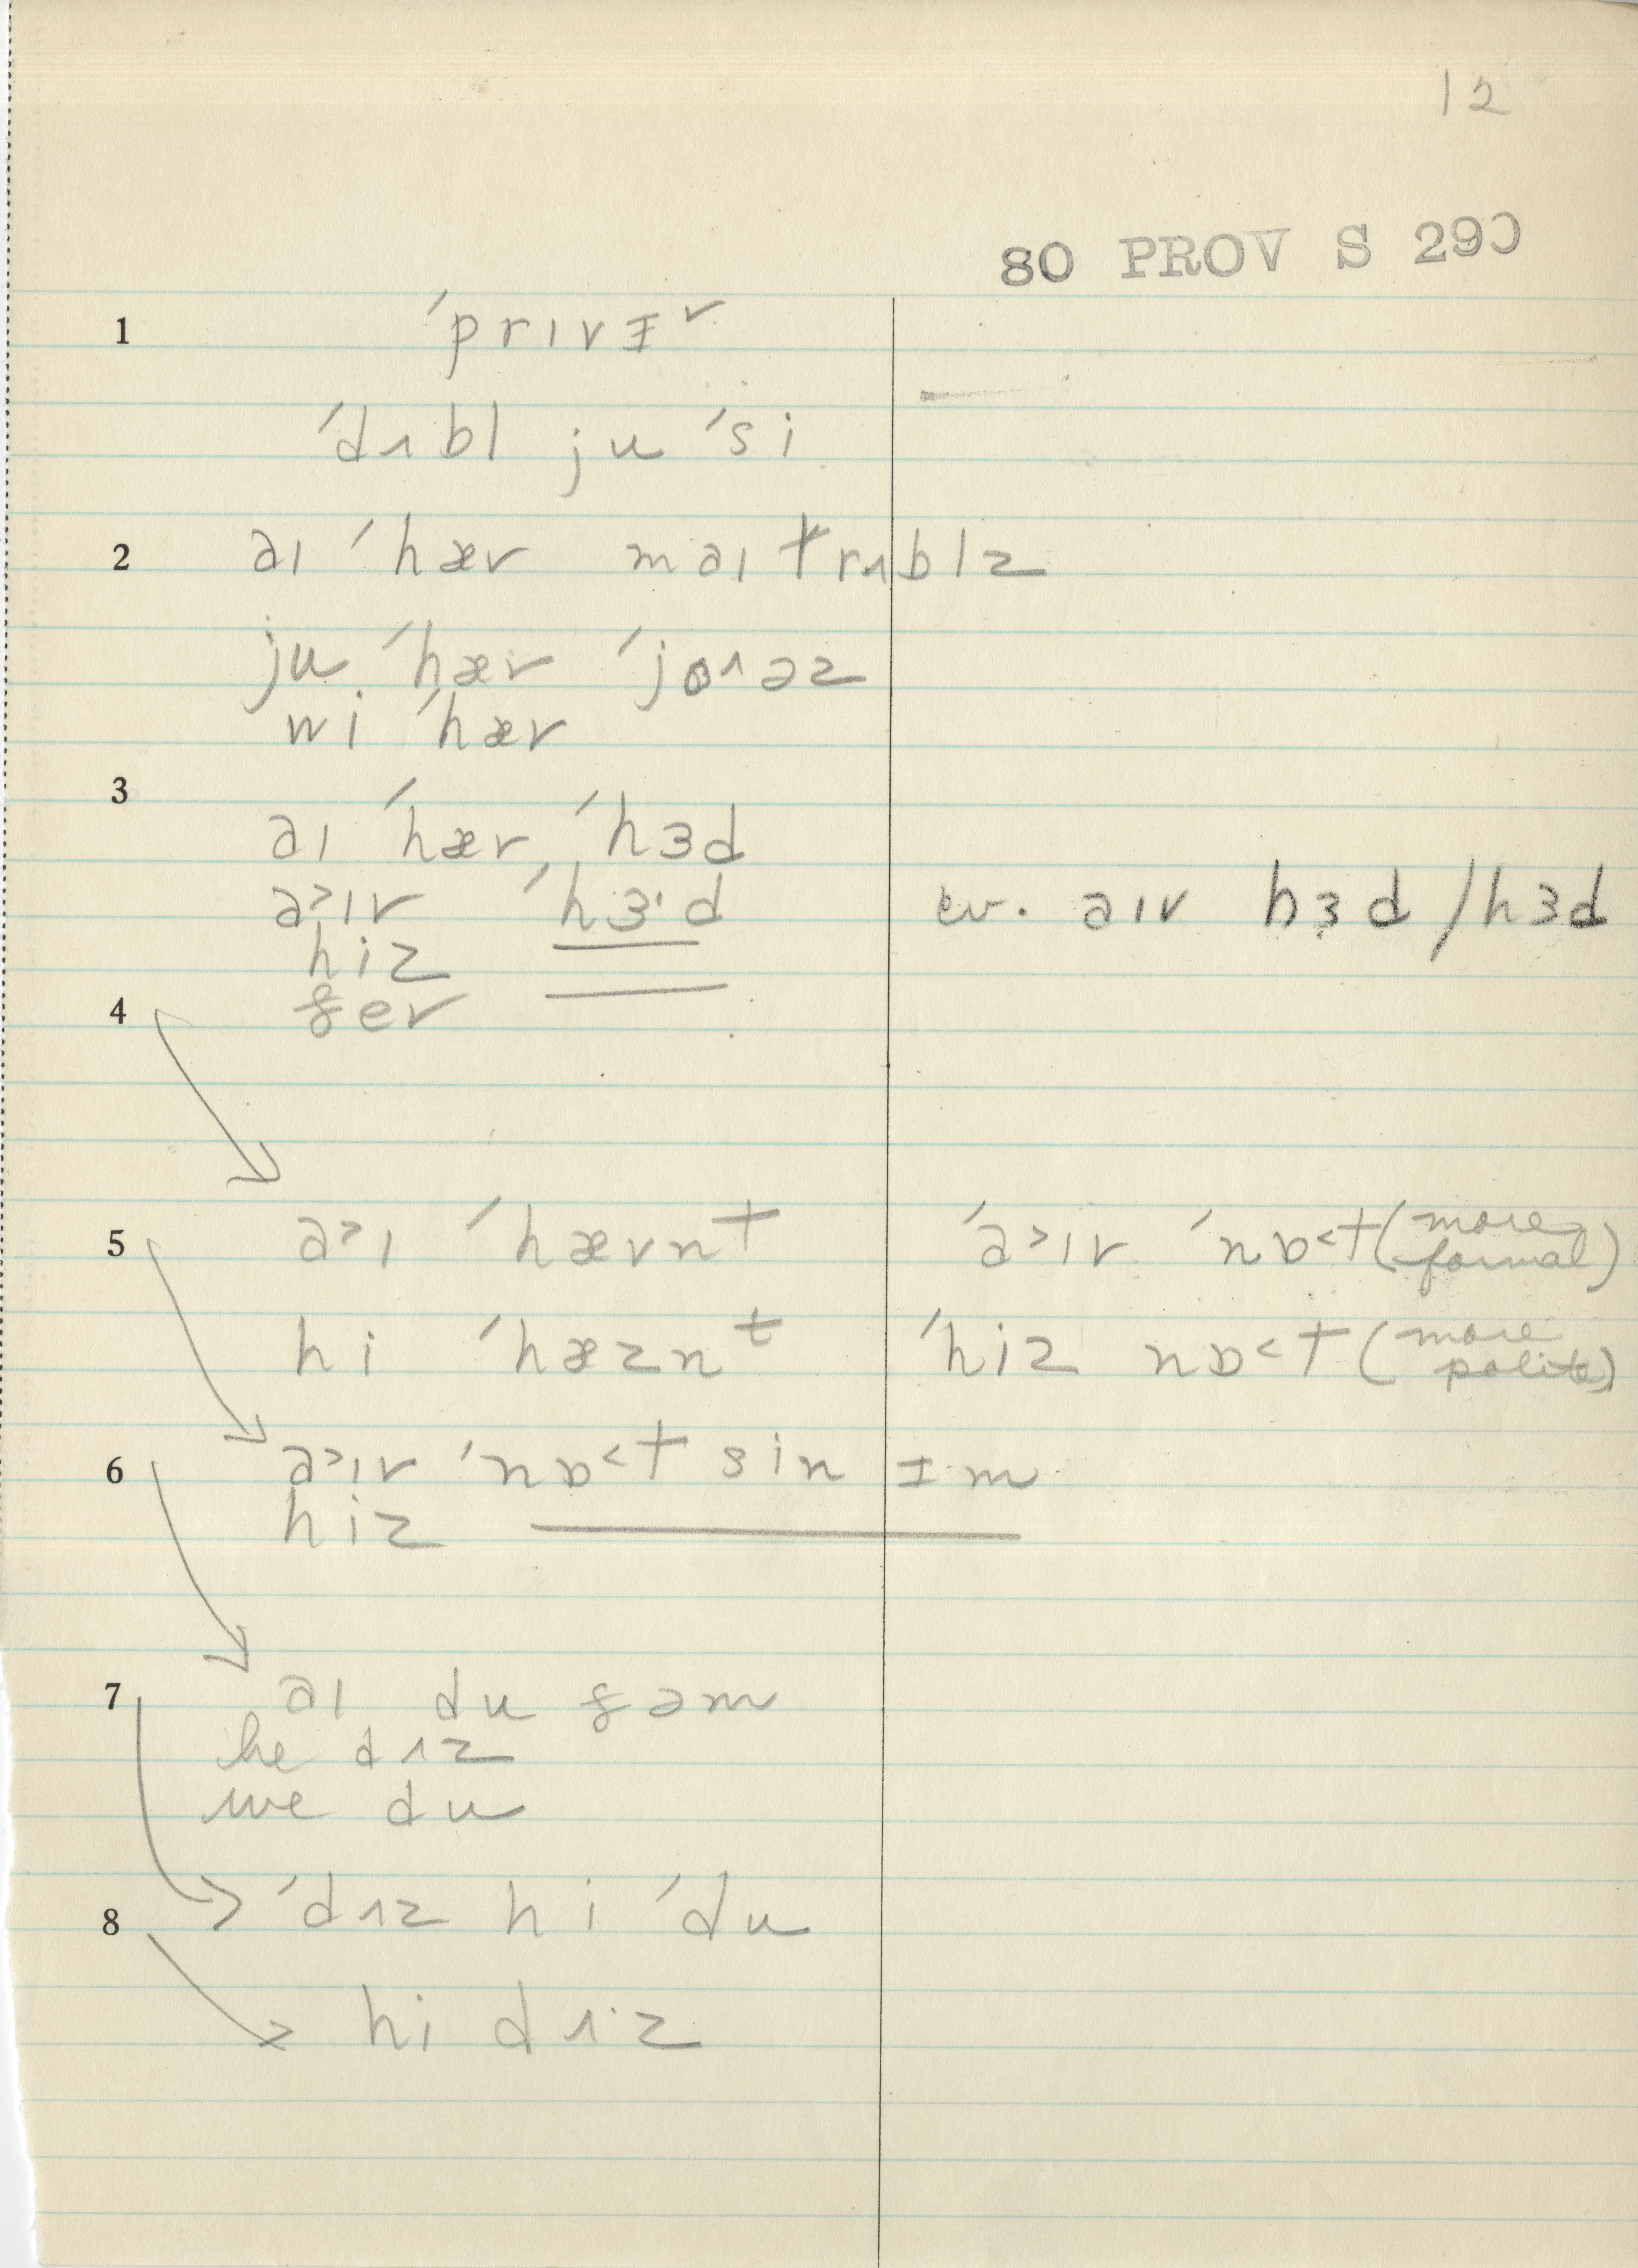 12
80 PROV S 290
1 ˈprɪvɪ^v
ˈdʌbl ju ˈsi
2 aɪ ˈhæv maɪ trʌblz
ju ˈhæv ˈjoʌəz
wi ˈhæv
3
aɪ ˈhæv ˈhɜd
a>ɪv ˈhɜ·d cv. aɪv hɜd / hɜd
hiz
4 ðev
5 a>ɪ ˈhævnt ˈa>ɪv ˈnɒ<t (more formal)
hi ˈhæznt ˈhiz nɒ<t (more polite)
6 a>ɪv ˈnɒ<t sin ɪm
hiz
7 aɪ du ðəm
he dʌz
we du
8 ˈdʌz hi ˈdu
hi dʌ·z